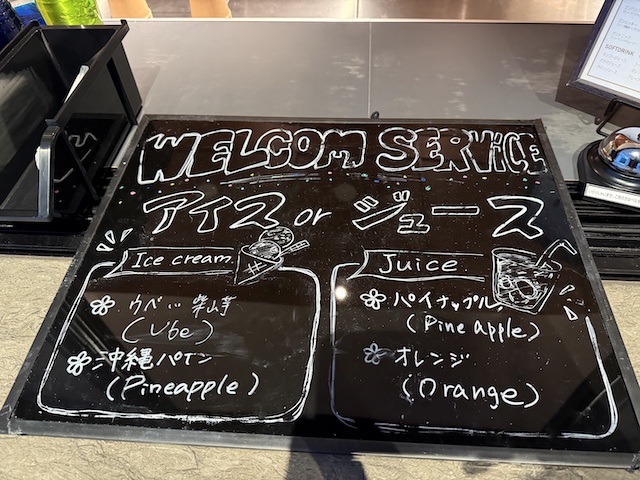 WELCOM SERViCE
アイス or ジュース
Ice cream.
ウベ
(Ube)
沖縄パイン
(Pineapple)
Juice.
パイナップル
(Pine apple)
オレンジ
(Orange)
SOFTDRINK